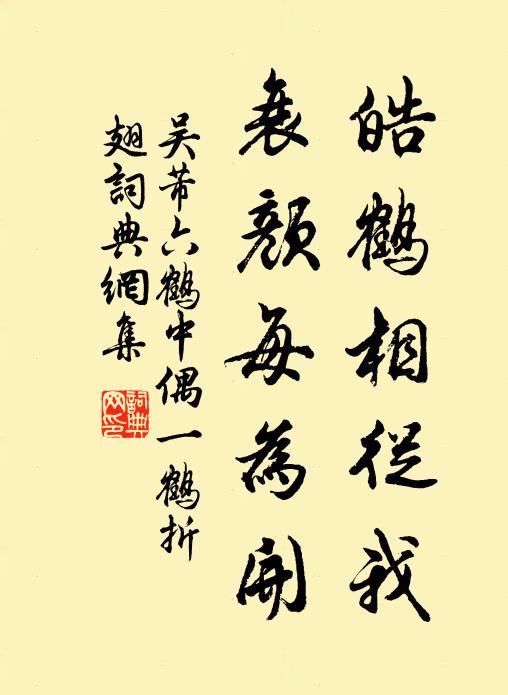 皓鶴相從我
衰顏每為開
吴芾六鶴中偶一鶴折
翅詞典網集
詞典網印